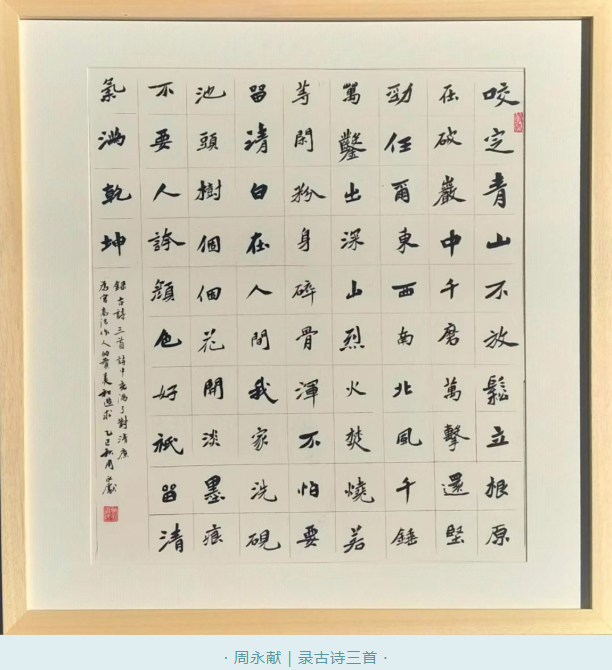 咬定青山不放鬆立根原
在破巖中千磨萬擊還堅
勁任爾東西南北風千錘
萬鑿出深山烈火焚燒若
等閑粉身碎骨渾不怕要
留清白在人間我家洗硯
池頭樹個個花開淡墨痕
不要人誇顏色好衹留清
氣滿乾坤
錄古詩三首詩中充滿了對清廉
為官高洁作人的贊美和追求 乙巳秋周永獻
· 周永献 | 录古诗三首 ·